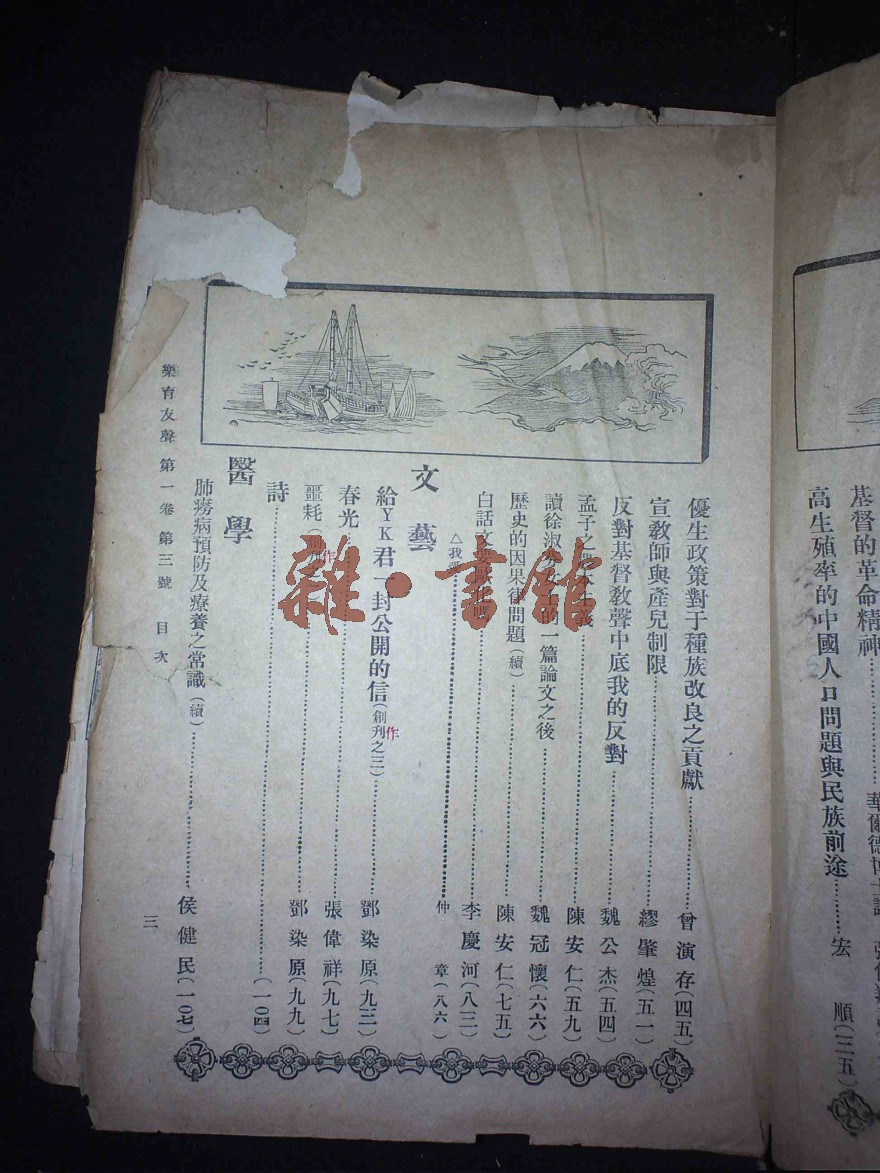 基督的革命精神………華爾德博士講
高生殖率的中國人口問題與民族前途………宏 順(三五)
優生政策對于種族改良之貢獻………曾演存(四五)
宣敎師與產兒制限………繆肇煌(五一)
反對基督敎聲中底我的反對………魏公杰(五四)
孟子之 主義………陳安仁(五九)
讀徐淑 的一篇論文之後………魏冠懷(六六)
歷史的因果律問題(續)………陳安仁(七五)
白話文要歐化嗎………李慶河(八三)
△我 ………仲 章(八六)
文藝
給YK君一封公開的信(創刋之三)………鄧染原(九三)
作
春光………張偉祥(九七)
噩耗( )………鄧染原(九九)
作
詩………(一〇四)
醫學
肺癆病預防及療養之常識(續)………侯健民(一〇七)
樂育友聲 第一卷 第三號 目次
三
雜·書館